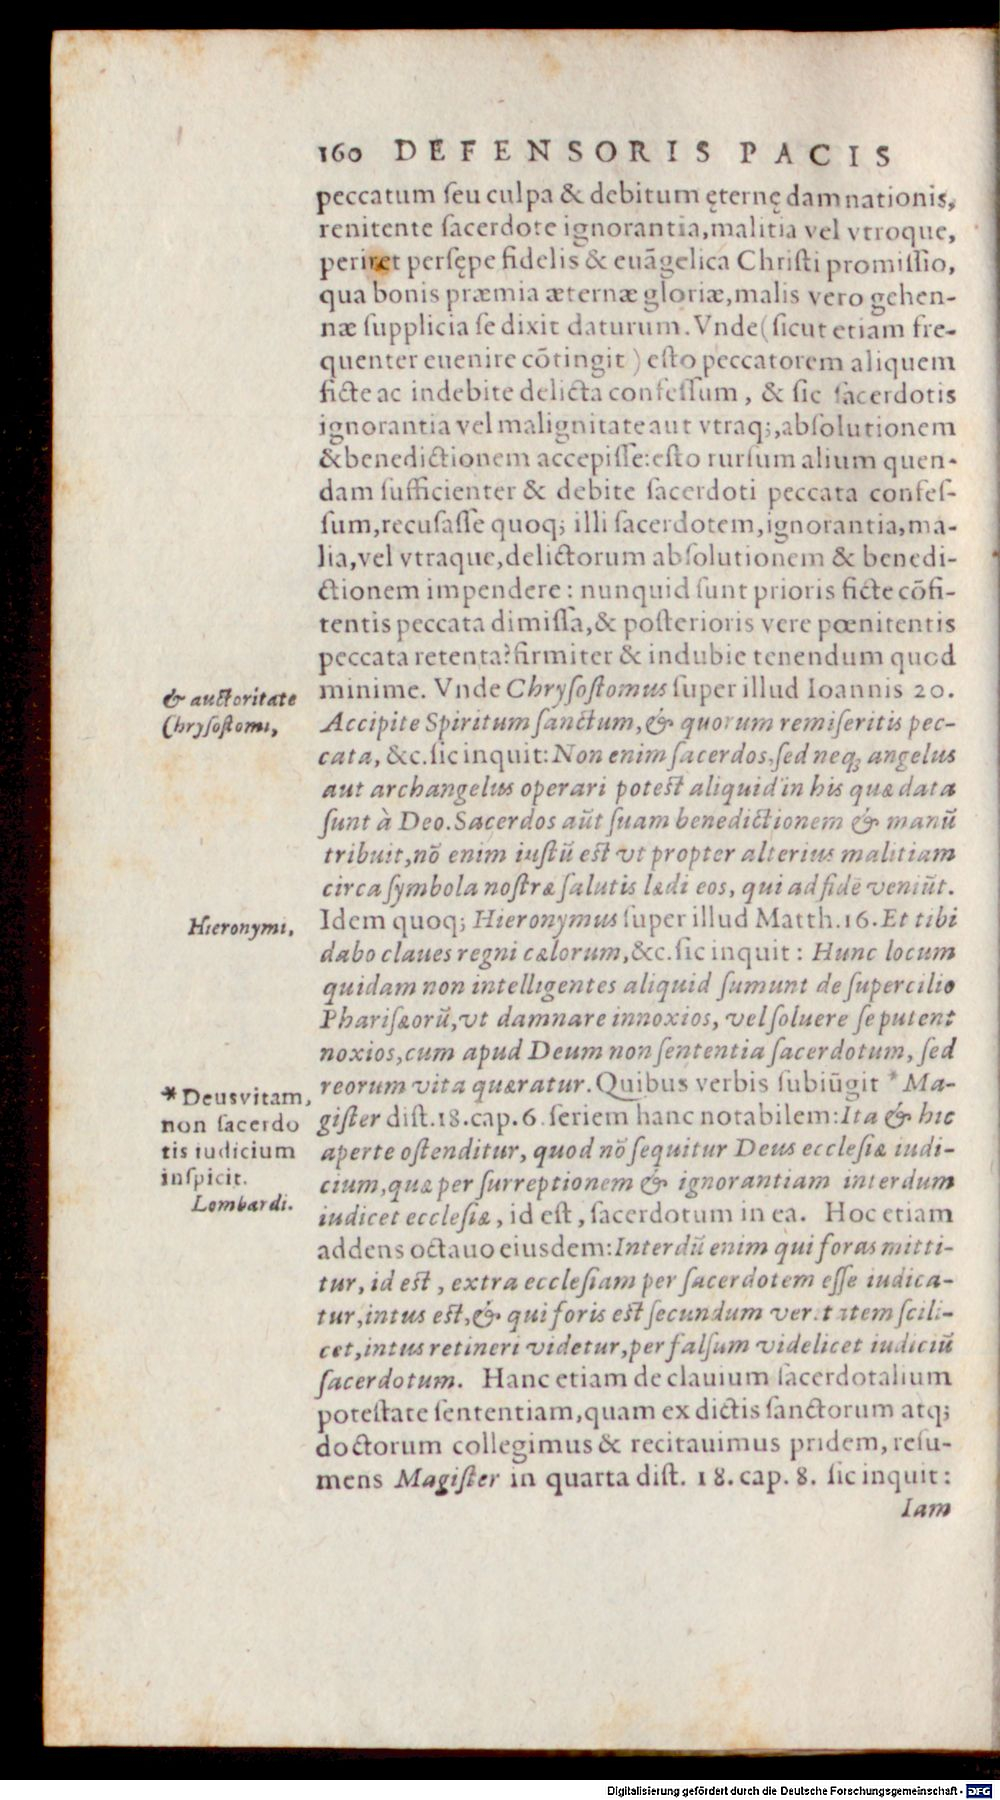 160 DEFENSORIS PACIS
peccatum ſeu culpa & debitum ęternę damnationis,
renitente ſacerdote ignorantia,malitia vel vtroque,
periret perſępe fidelis & euãgelica Chriſti promiſſio,
qua bonis præmia æternæ gloriæ,malis vero gehen-
næ ſupplicia ſe dixit daturum. Vnde (ſicut etiam fre-
quenter euenire cõtingit) eſto peccatorem aliquem
ficte ac indebite delicta confeſſum, & ſic ſacerdotis
ignorantia vel malignitate aut vtraq;,abſolutionem
& benedictionem accepiſſe: eſto rurſum alium quen-
dam ſufficienter & debite ſacerdoti peccata confeſ-
ſum,recuſaſſe quoq; illi ſacerdotem,ignorantia,ma-
lia,vel vtraque,delictorum abſolutionem & benedi-
ctionem impendere: nunquid ſunt prioris ficte cõfi-
tentis peccata dimiſſa,& poſterioris vere pœnitentis
peccata retenta? firmiter & indubie tenendum quod
minime. Vnde Chryſoſtomus ſuper illud Ioannis 20.
Accipite Spiritum ſanctum,& quorum remiſeritis pec-
cata, &c. ſic inquit: Non enim ſacerdos,ſed neq; angelus
aut archangelus operari poteſt aliquid in his quæ data
ſunt à Deo. Sacerdos aũt ſuam benedictionem & manũ
tribuit,nõ enim iuſtũ eſt vt propter alterius malitiam
circa ſymbola noſtræ ſalutis lædi eos, qui ad fidẽ veniũt.
Idem quoq; Hieronymus ſuper illud Matth.16. Et tibi
dabo claues regni cælorum,&c. ſic inquit: Hunc locum
quidam non intelligentes aliquid ſumunt de ſupercilio
Phariſæorũ,vt damnare innoxios, vel ſoluere ſe putent
noxios,cum apud Deum non ſententia ſacerdotum, ſed
reorum vita quæratur. Quibus verbis ſubiũgit * Ma-
giſter diſt.18.cap.6. ſeriem hanc notabilem: Ita & hic
aperte oſtenditur, quod nõ ſequitur Deus eccleſiæ iudi-
cium,quæ per ſurreptionem & ignorantiam interdum
iudicet eccleſiæ, id eſt, ſacerdotum in ea. Hoc etiam
addens octauo eiusdem: Interdũ enim qui foras mitti-
tur, id eſt, extra eccleſiam per ſacerdotem eſſe iudica-
tur,intus eſt,& qui foris eſt ſecundum veritatem ſcili-
cet,intus retineri videtur,per falſum videlicet iudiciũ
ſacerdotum. Hanc etiam de clauium ſacerdotalium
poteſtate ſententiam,quam ex dictis ſanctorum atq;
doctorum collegimus & recitauimus pridem, reſu-
mens Magiſter in quarta diſt. 18. cap. 8. ſic inquit:
Iam
& auctoritate
Chryſoſtomi,
Hieronymi,
* Deus vitam,
non ſacerdo
tis iudicium
inſpicit.
Lombardi.
Digitalisierung gefördert durch die Deutsche Forschungsgemeinschaft - DFG